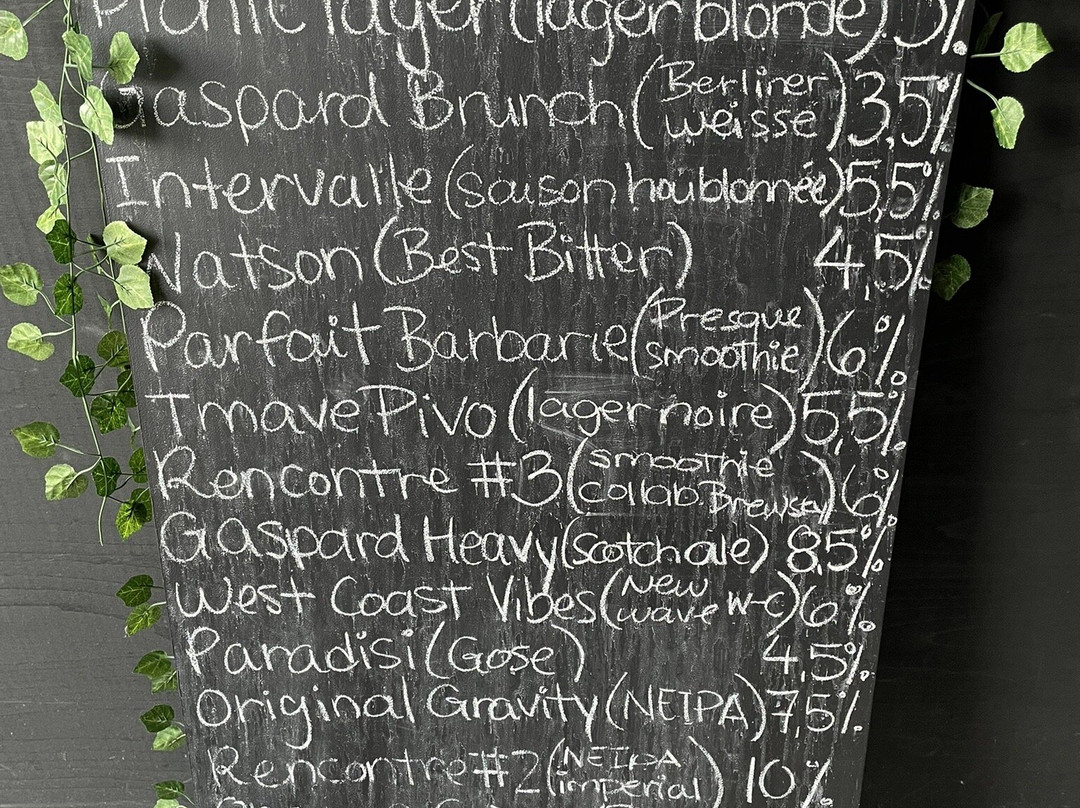 lager (lager blonde) 5%
Gaspard Brunch (Berliner weisse) 3,5%
Intervalle (saison houblonnée) 5,5%
Watson (Best Bitter) 4,5%
Parfait Barbarie (Presque smoothie) 6%
Tmave Pivo (lager noire) 5,5%
Rencontre #3 (smoothie collab Brewsky) 6%
Gaspard Heavy (Scotch ale) 8,5%
West Coast Vibes (New wave W-C) 6%
Paradisi (Gose) 4,5%
Original Gravity (NEIPA) 7,5%
Rencontre #2 (NEIPA imperial) 10%